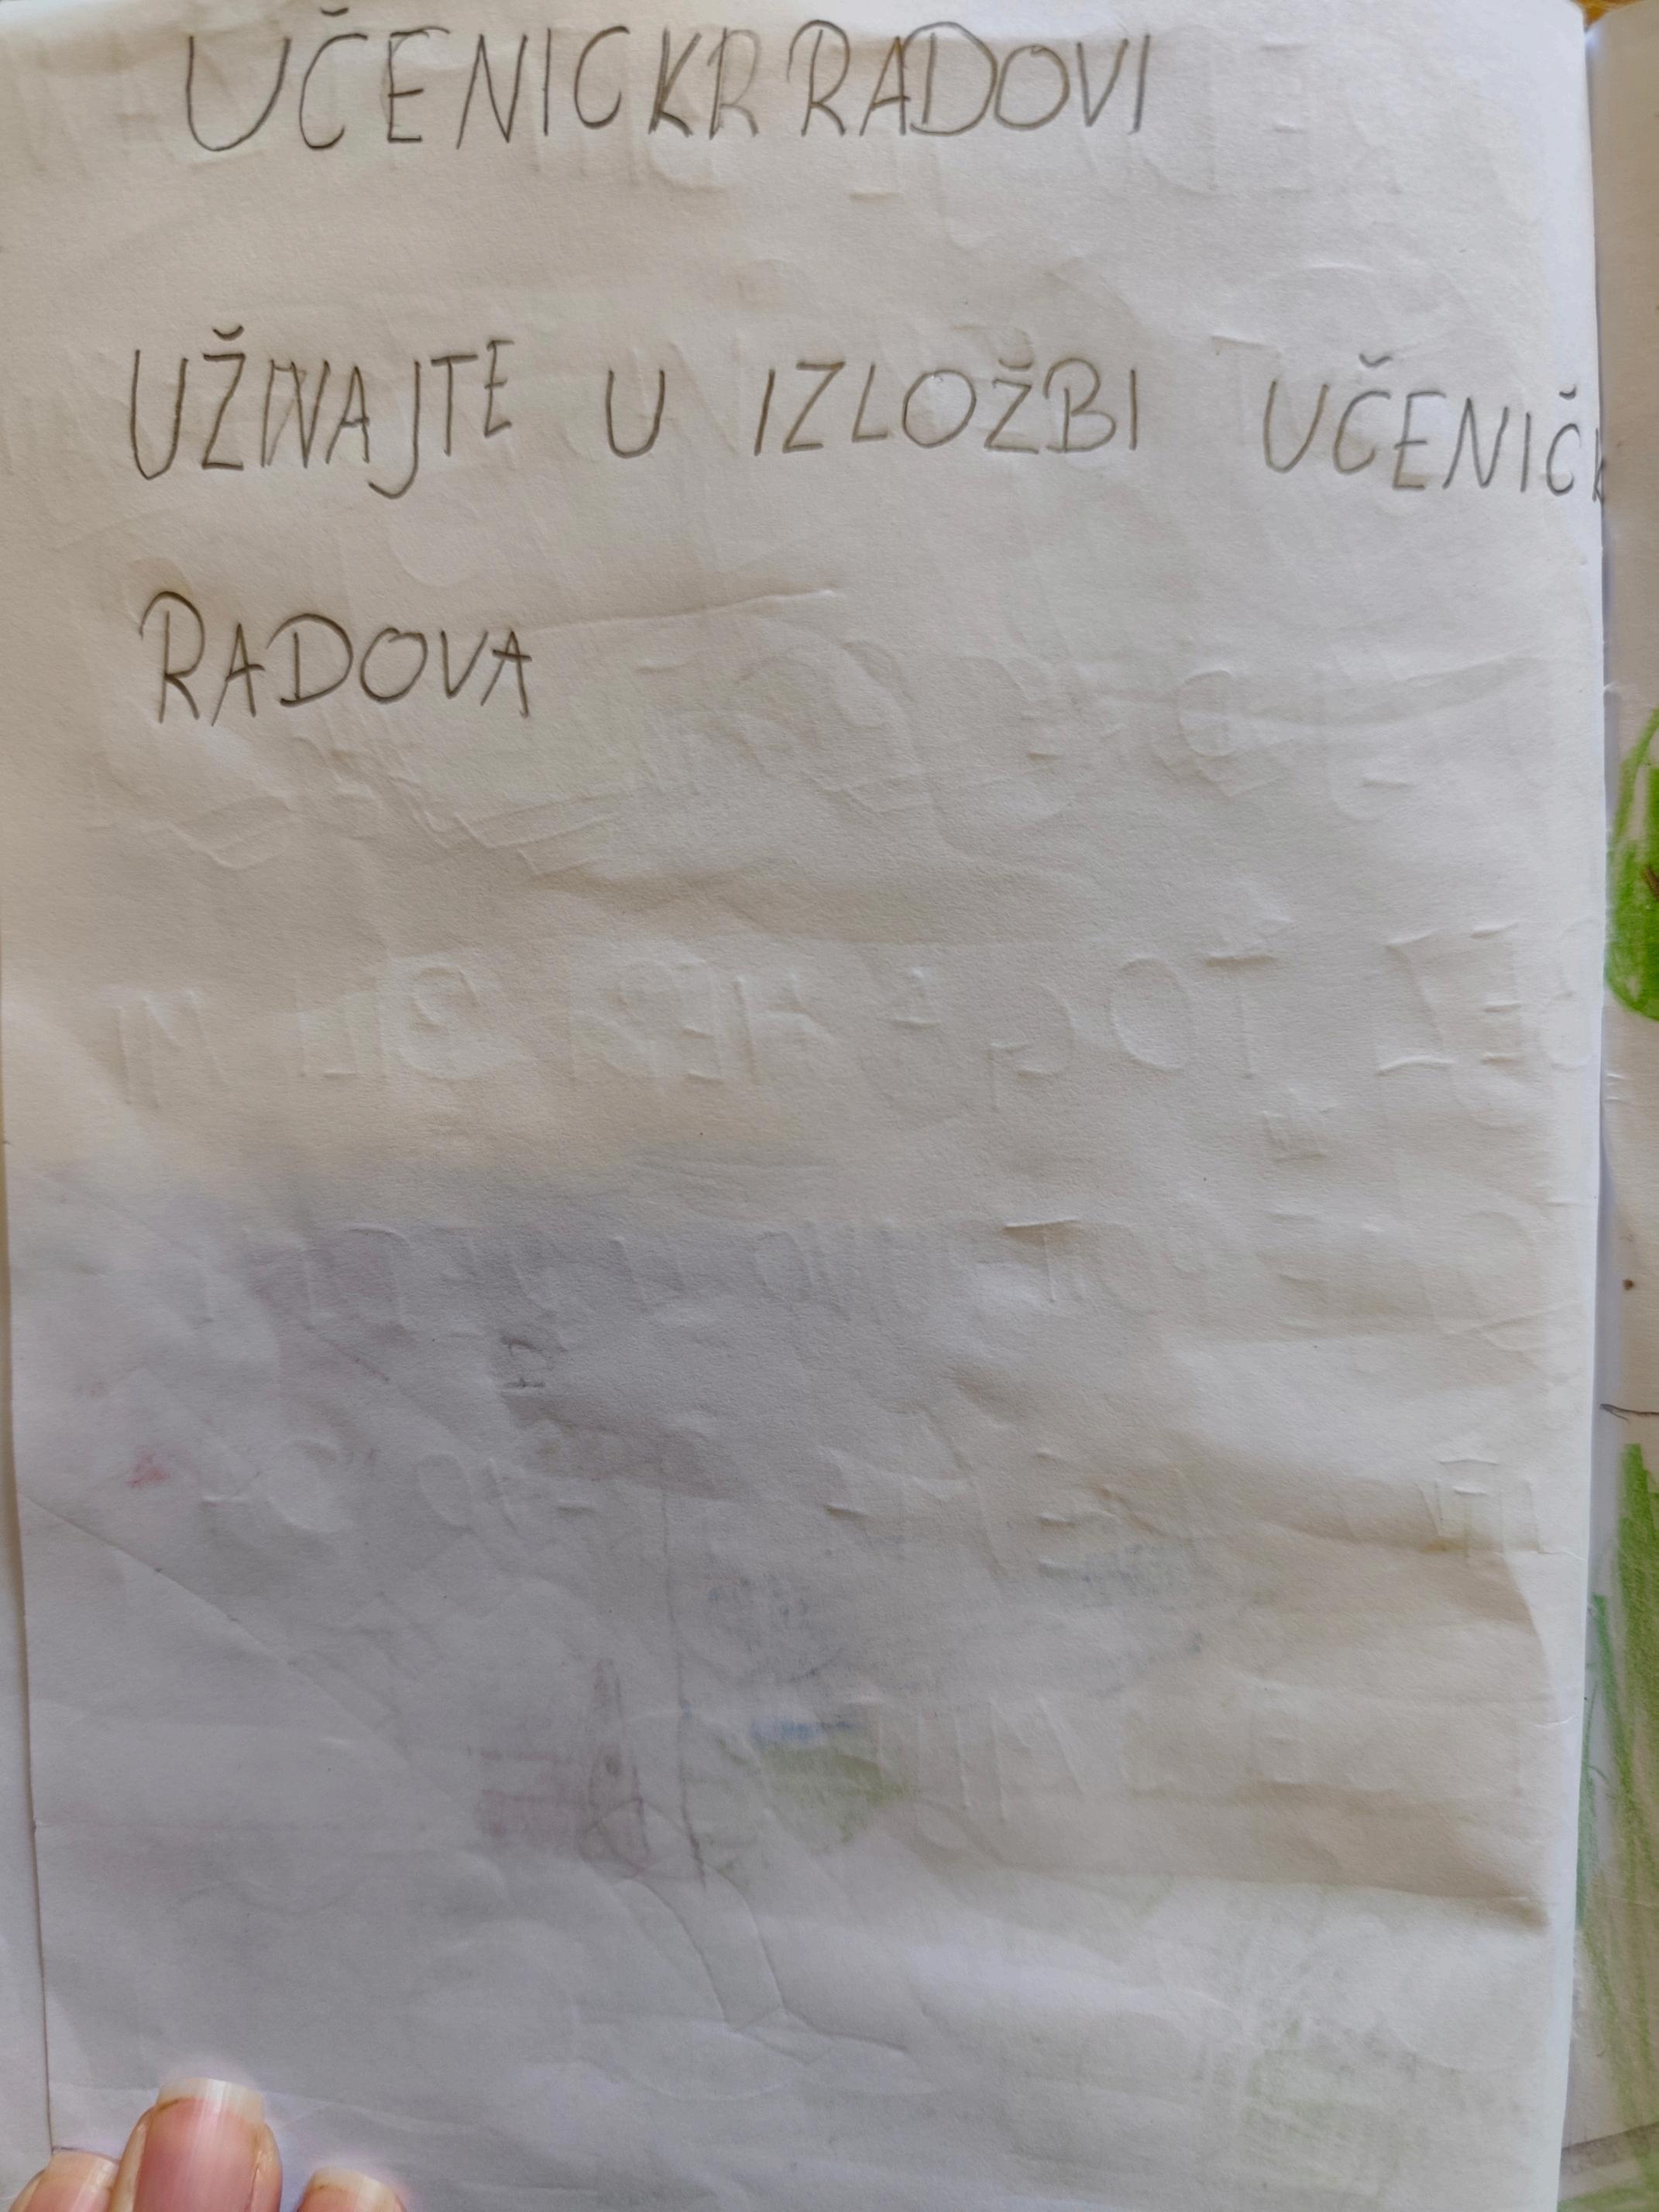 UČENICKR RADOVI
UŽIVAJTE U IZLOŽBI UČENIČK
RADOVA